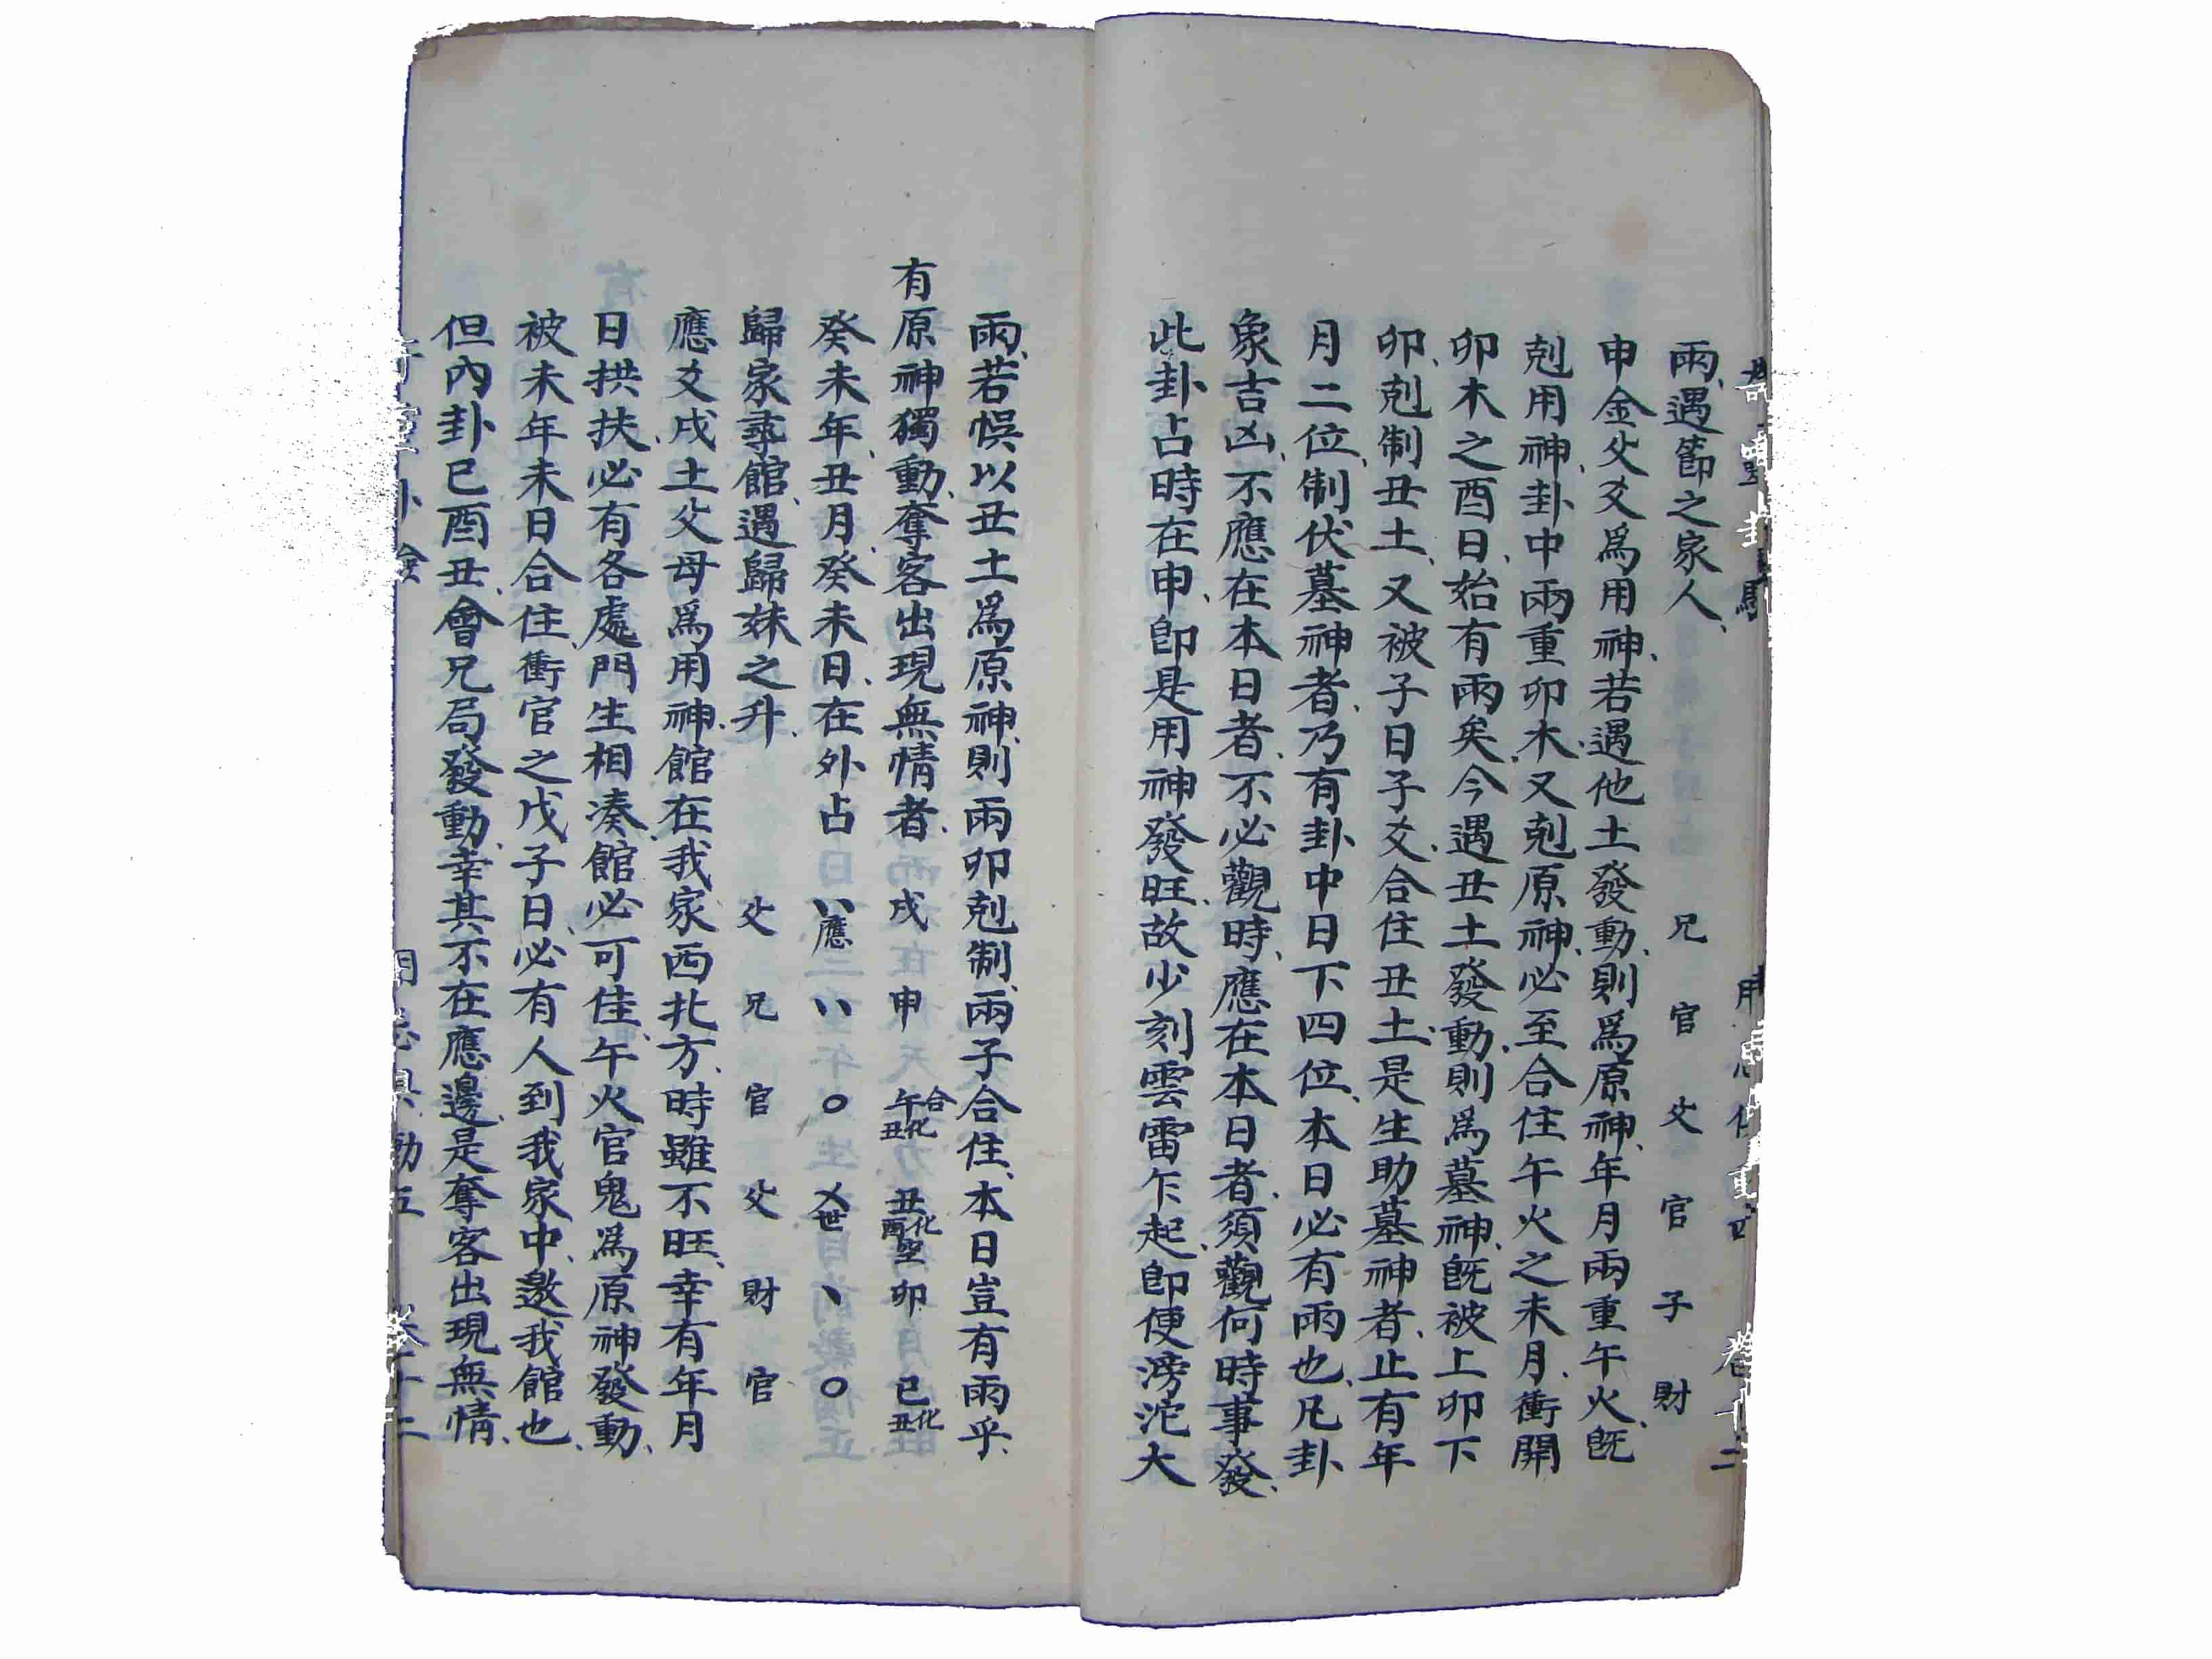 雨、遇節之家人、 兄 官 父 官 子 財
申金父爻爲用神、若遇他土發動、則爲原神、年月兩重午火、旣
剋用神、卦中兩重卯木、又剋原神、必至合住午火之未月、衝開
卯木之酉日、始有雨矣、今遇丑土發動、則爲墓神、旣被上卯下
卯、剋制丑土、又被子日子爻、合住丑土、是生助墓神者、止有年
月二位、制伏墓神者、乃有卦中日下四位、本日必有雨也、凡卦
象吉凶、不應在本日者、不必觀時、應在本日者、須觀何時事發、
此卦占時在申、卽是用神發旺、故少刻雲雷乍起、卽便滂沱大
雨、若悮以丑土爲原神、則兩卯剋制、兩子合住、本日豈有雨乎、
有原神獨動、奪客出現無情者、 戌 申 午合化丑 丑化酉空 卯 巳化丑
癸未年、丑月癸未日、在外占 〃應 〃 〇 乂世 、 〇
歸家尋館、遇歸妹之升、 父 兄 官 父 財 官
應爻戌土父母爲用神、館在我家西北方、時雖不旺、幸有年月
日拱扶、必有各處門生相湊、館必可佳、午火官鬼爲原神發動、
被未年未日合住、衝官之戊子日、必有人到我家中、邀我館也、
但內卦巳酉丑、會兄局發動、幸其不在應邊、是奪客出現無情、